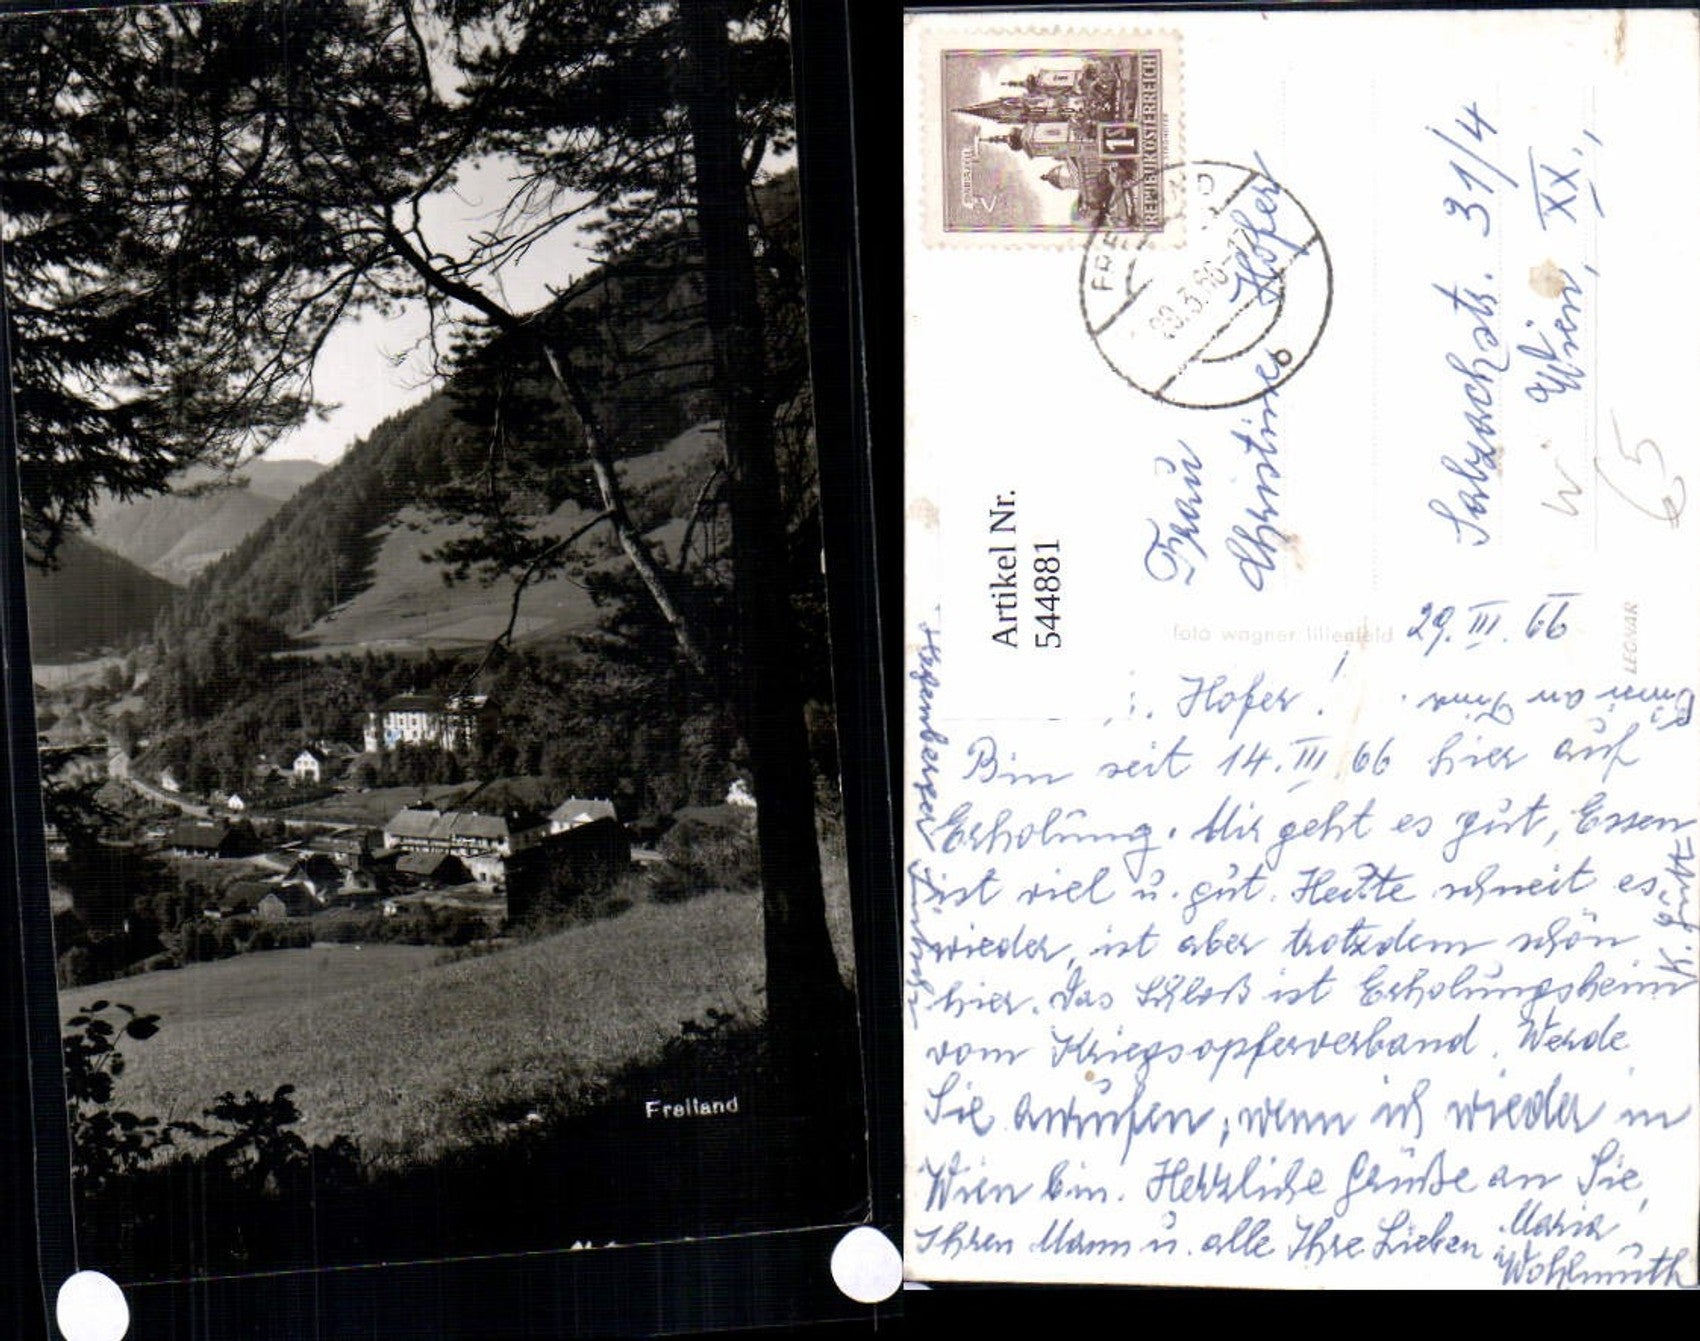 Freiland
REPUBLIK ÖSTERREICH
1
MARIAZELL
29.3.66
b
Artikel Nr.
544881
Frau
Christine Hofer
Salzachstr. 31/4
Wien, XX.,
W
65
foto wagner lilienfeld
LEONAR
29. III. 66
Hofer!
Bin seit 14. III. 66 hier auf
Erholung. Mir geht es gut, Essen
ist viel u. gut. Heute schneit es
wieder, ist aber trotzdem schön
hier. Das Schloß ist Erholungsheim
vom Kriegsopferverband. Werde
Sie anrufen, wenn ich wieder in
Wien bin. Herzliche Grüße an Sie,
Ihren Mann u. alle Ihre Lieben Maria
Wohlmuth